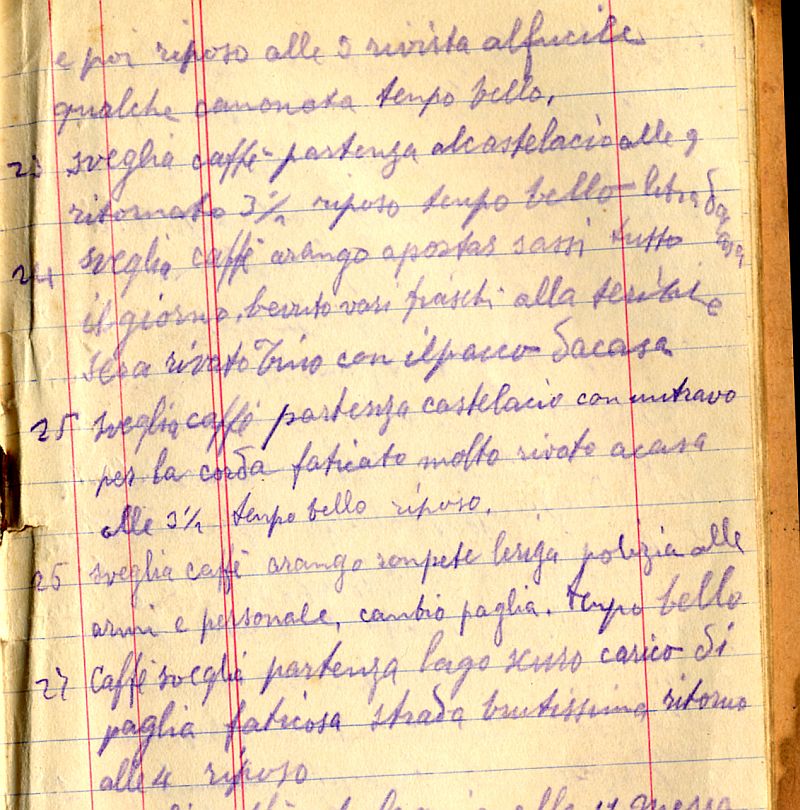 e poi riposo alle 3 rivista alfucile
qualche canonata tenpo bello.
23 sveglia caffè partenza alcastelacio alle 9
ritornato 3½ riposo tenpo bello letra da casa
24 sveglia caffè arango sassi tutto
il giorno, beuto vari fiaschi alla
sera rivato Tino con ilpacco dacasa
25 sveglia caffè partenza castelacio con untravo
per la corda faticato molto rivato acasa
alle 3½ tenpo bello riposo.
26 sveglia caffè arango polizia alle
armi e personale, canbio paglia. tenpo bello
27 Caffè sveglia partenza lago scuro carico di
paglia faticosa strada brutissima ritorno
alle 4 riposo